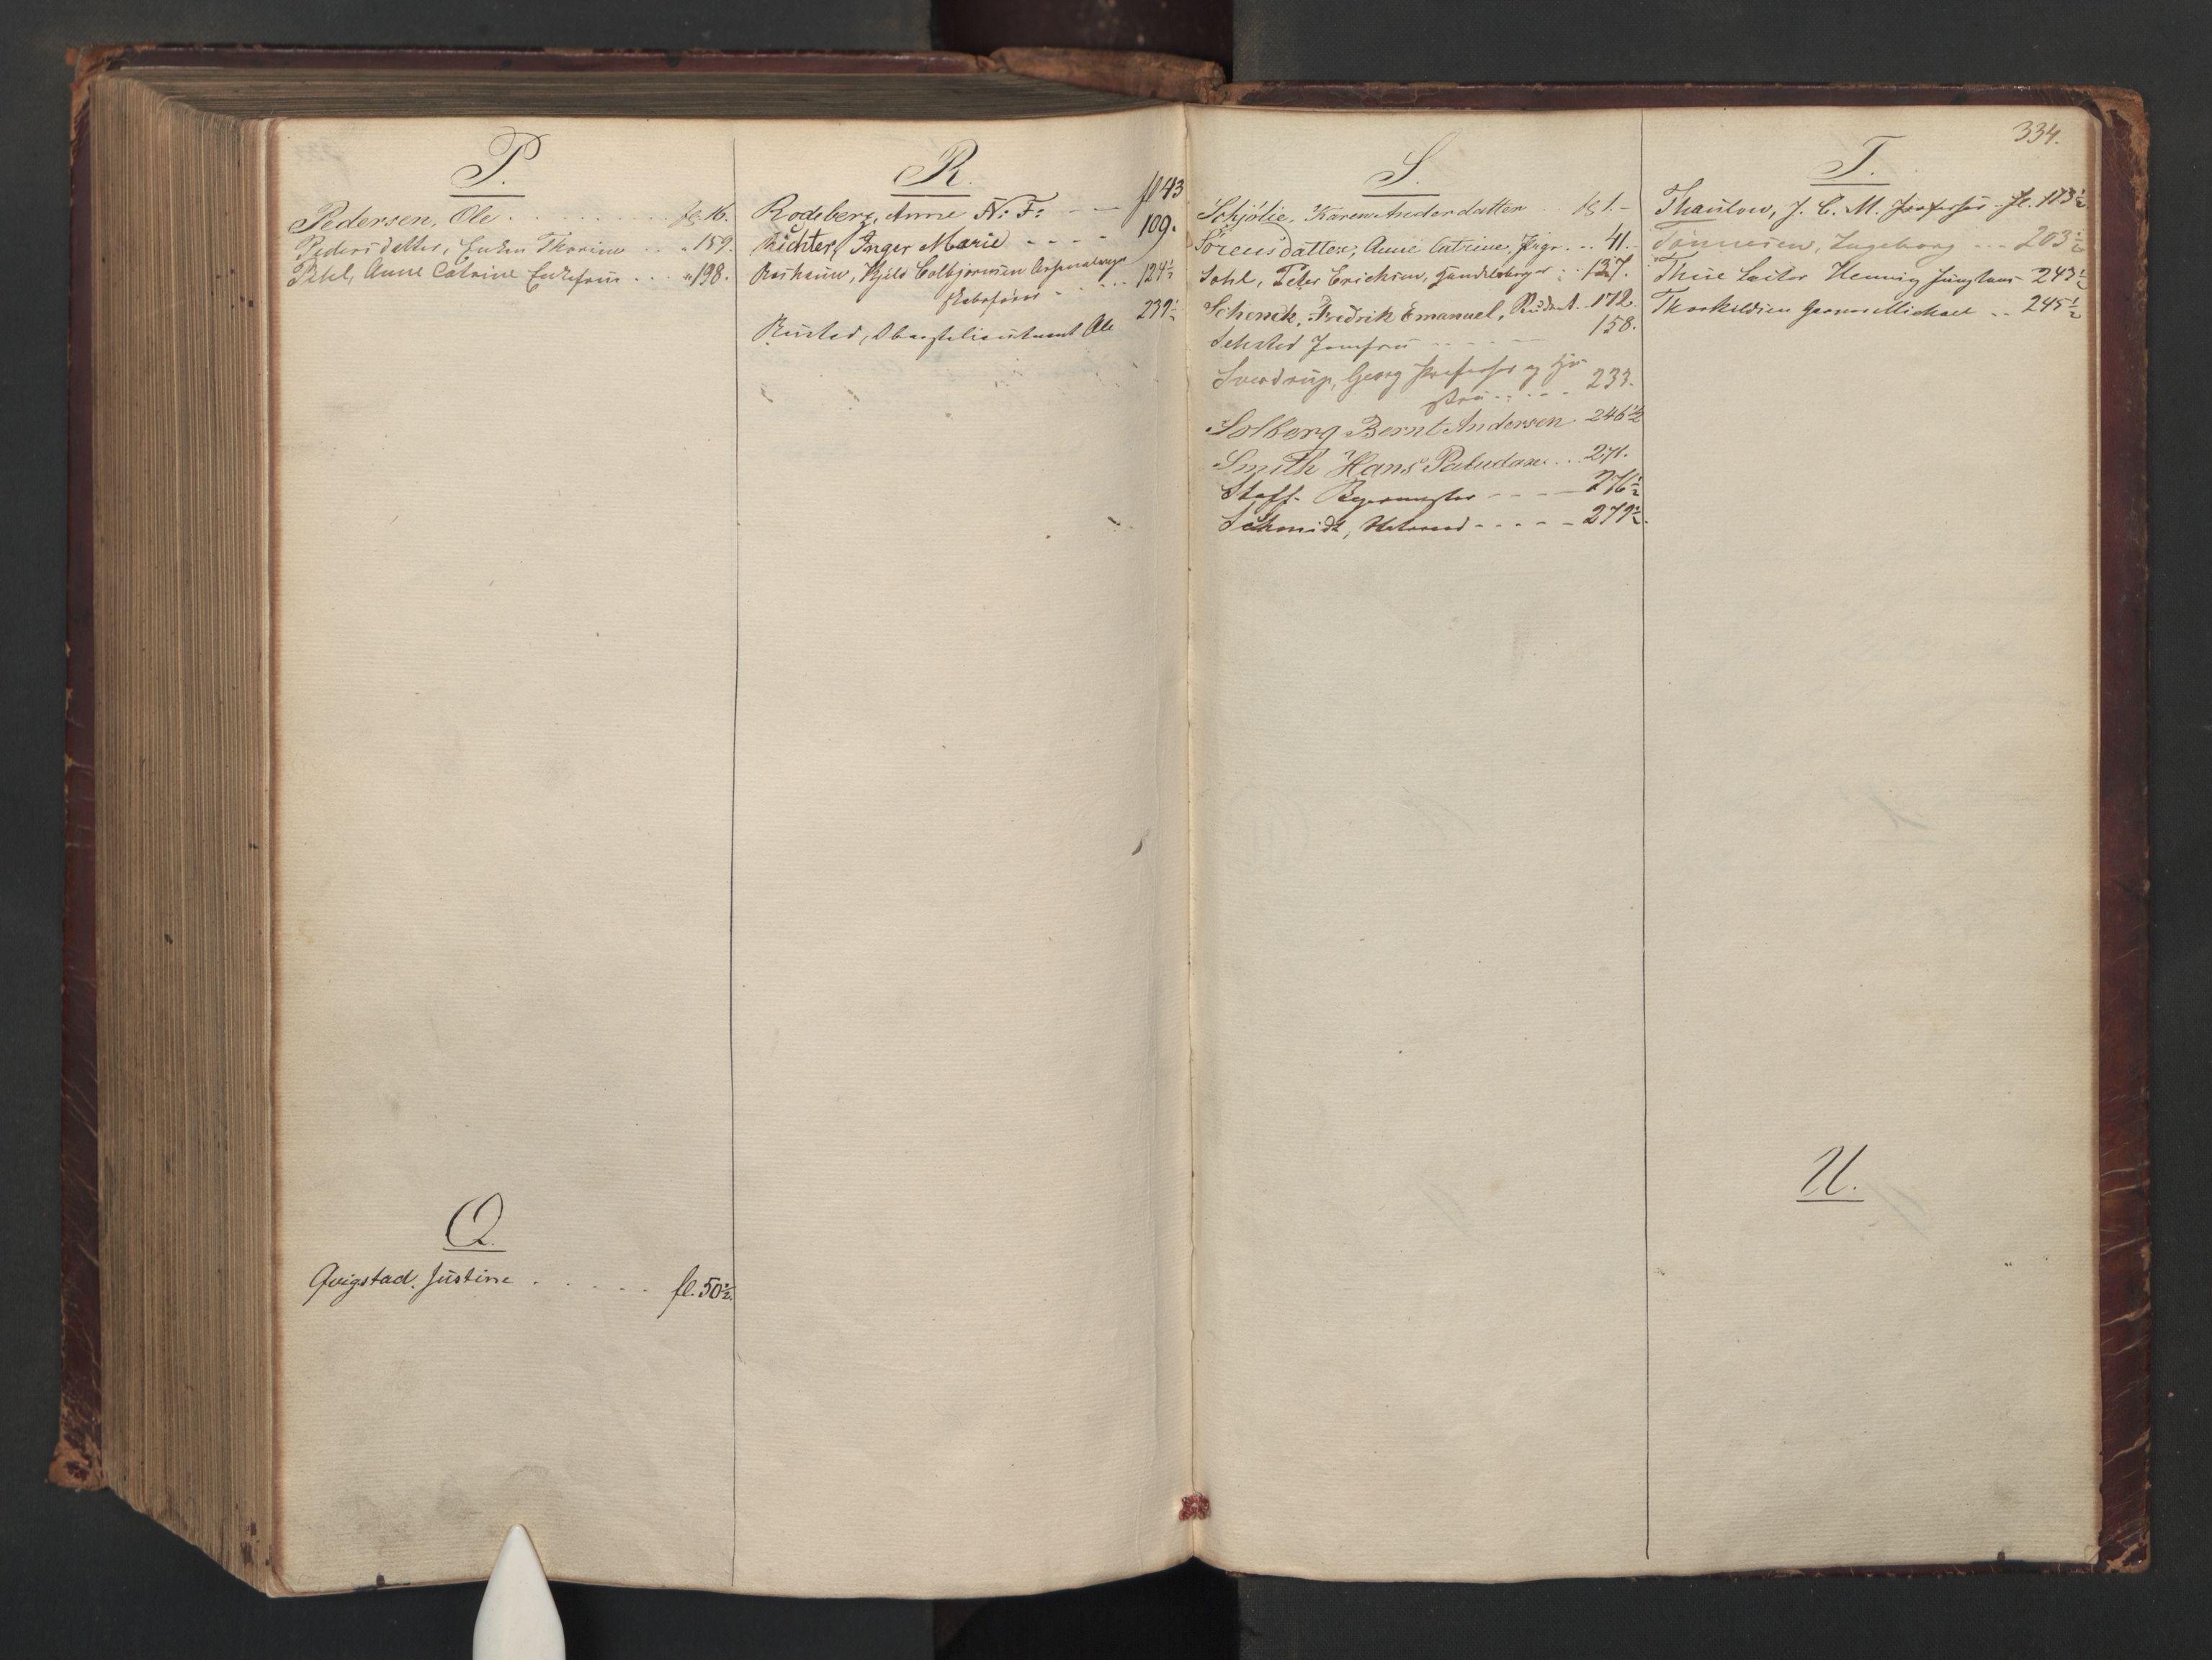 P.
Pedersen, Ole . . . . . . . fol. 16.
Pedersdatter, Enken Thorine . . " 159.
Pihl, Anne Catrine Enkefrue . . . " 198.
Q.
Qvigstad. Justine . . . . . . fl. 50½.
R.
Rodeberg, Anne N: F: - - fl 43
Richter, Inger Marie - - - - 109.
Colbjørnsen . . . 124½
Rustad, Oberstelieutnant Ole 239½
334.
S.
Schjólie, Karen Andersdatter . . fol 1. -
Sörensdatter, Anne Catrine, Pige. . . 41. -
Sohl, Peter Erichsen, Handelsborger . . 137.
Schenck, Fredrik Emanuel, Student. . 172.
Sehsted Jomfru - - - - - - 158.
Sverdrup, Georg Professor og Hu
stru - - . - - - 233.
Solberg Bernt Andersen 246½
Smith Hans Paludan . . . 271.
Staff - - - - 276½
Schmidt, - - - - - 279½.
T.
Thaulow, J. C. M. Professor . . fl. 173½
Tönnesen, Ingeborg - - - 203½
Thue Lector Henning Junghans 243½
Thorkildsen Michael . . 245½
U.